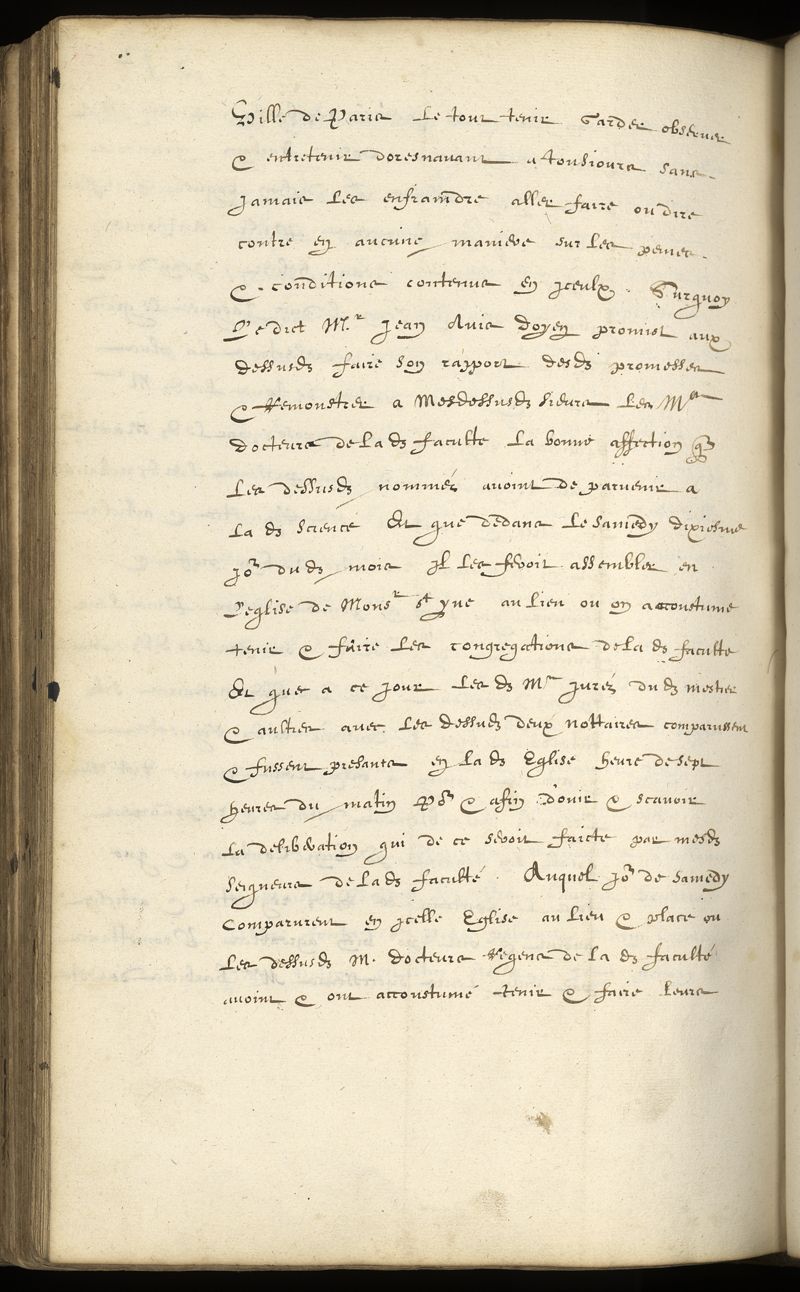 Ville de Paris Le tout tenir Garder observer
& entretenir doresnavant a tousiours sans
jamais Les enfraindre aller faire ou dire
contre en aucune maniere sur Les peines
& conditions contenus en jceulx. Surquoy
Ledict Mr. jean Avis doyen promist aux
dessusds faire son rapport desds promesses
& Remonstrer a Mesdessusds sieurs Les Mrs
docteurs de La de faculte La bonne affection q
Les dessusds nommez avoint de parvenir a
La de science Et que dedans Le samedy dixiesme
jor du d mois jl Les feroit assembler en
L'eglise de Monsr st yve au lieu ou on accoustume
tenir & faire Les congregations de La de faculte
Et que a ce jour Les ds Mrs jurez du d mestier
& aultres avec Les dessusds deux nottaires comparussent
& fussent presants en La de Eglise heure de sept
heures du matin Por & afin D'ouir & scavoir
La deliberation qui de ce seroit faicte par mesds
seigneurs de La de faculté. Auquel jor de samedy
Comparurent en jcelle Eglise au lieu & place ou
Les dessusds M. docteurs Regens de La de faculté
avoint & ont accoustumé tenir & faire Leurs